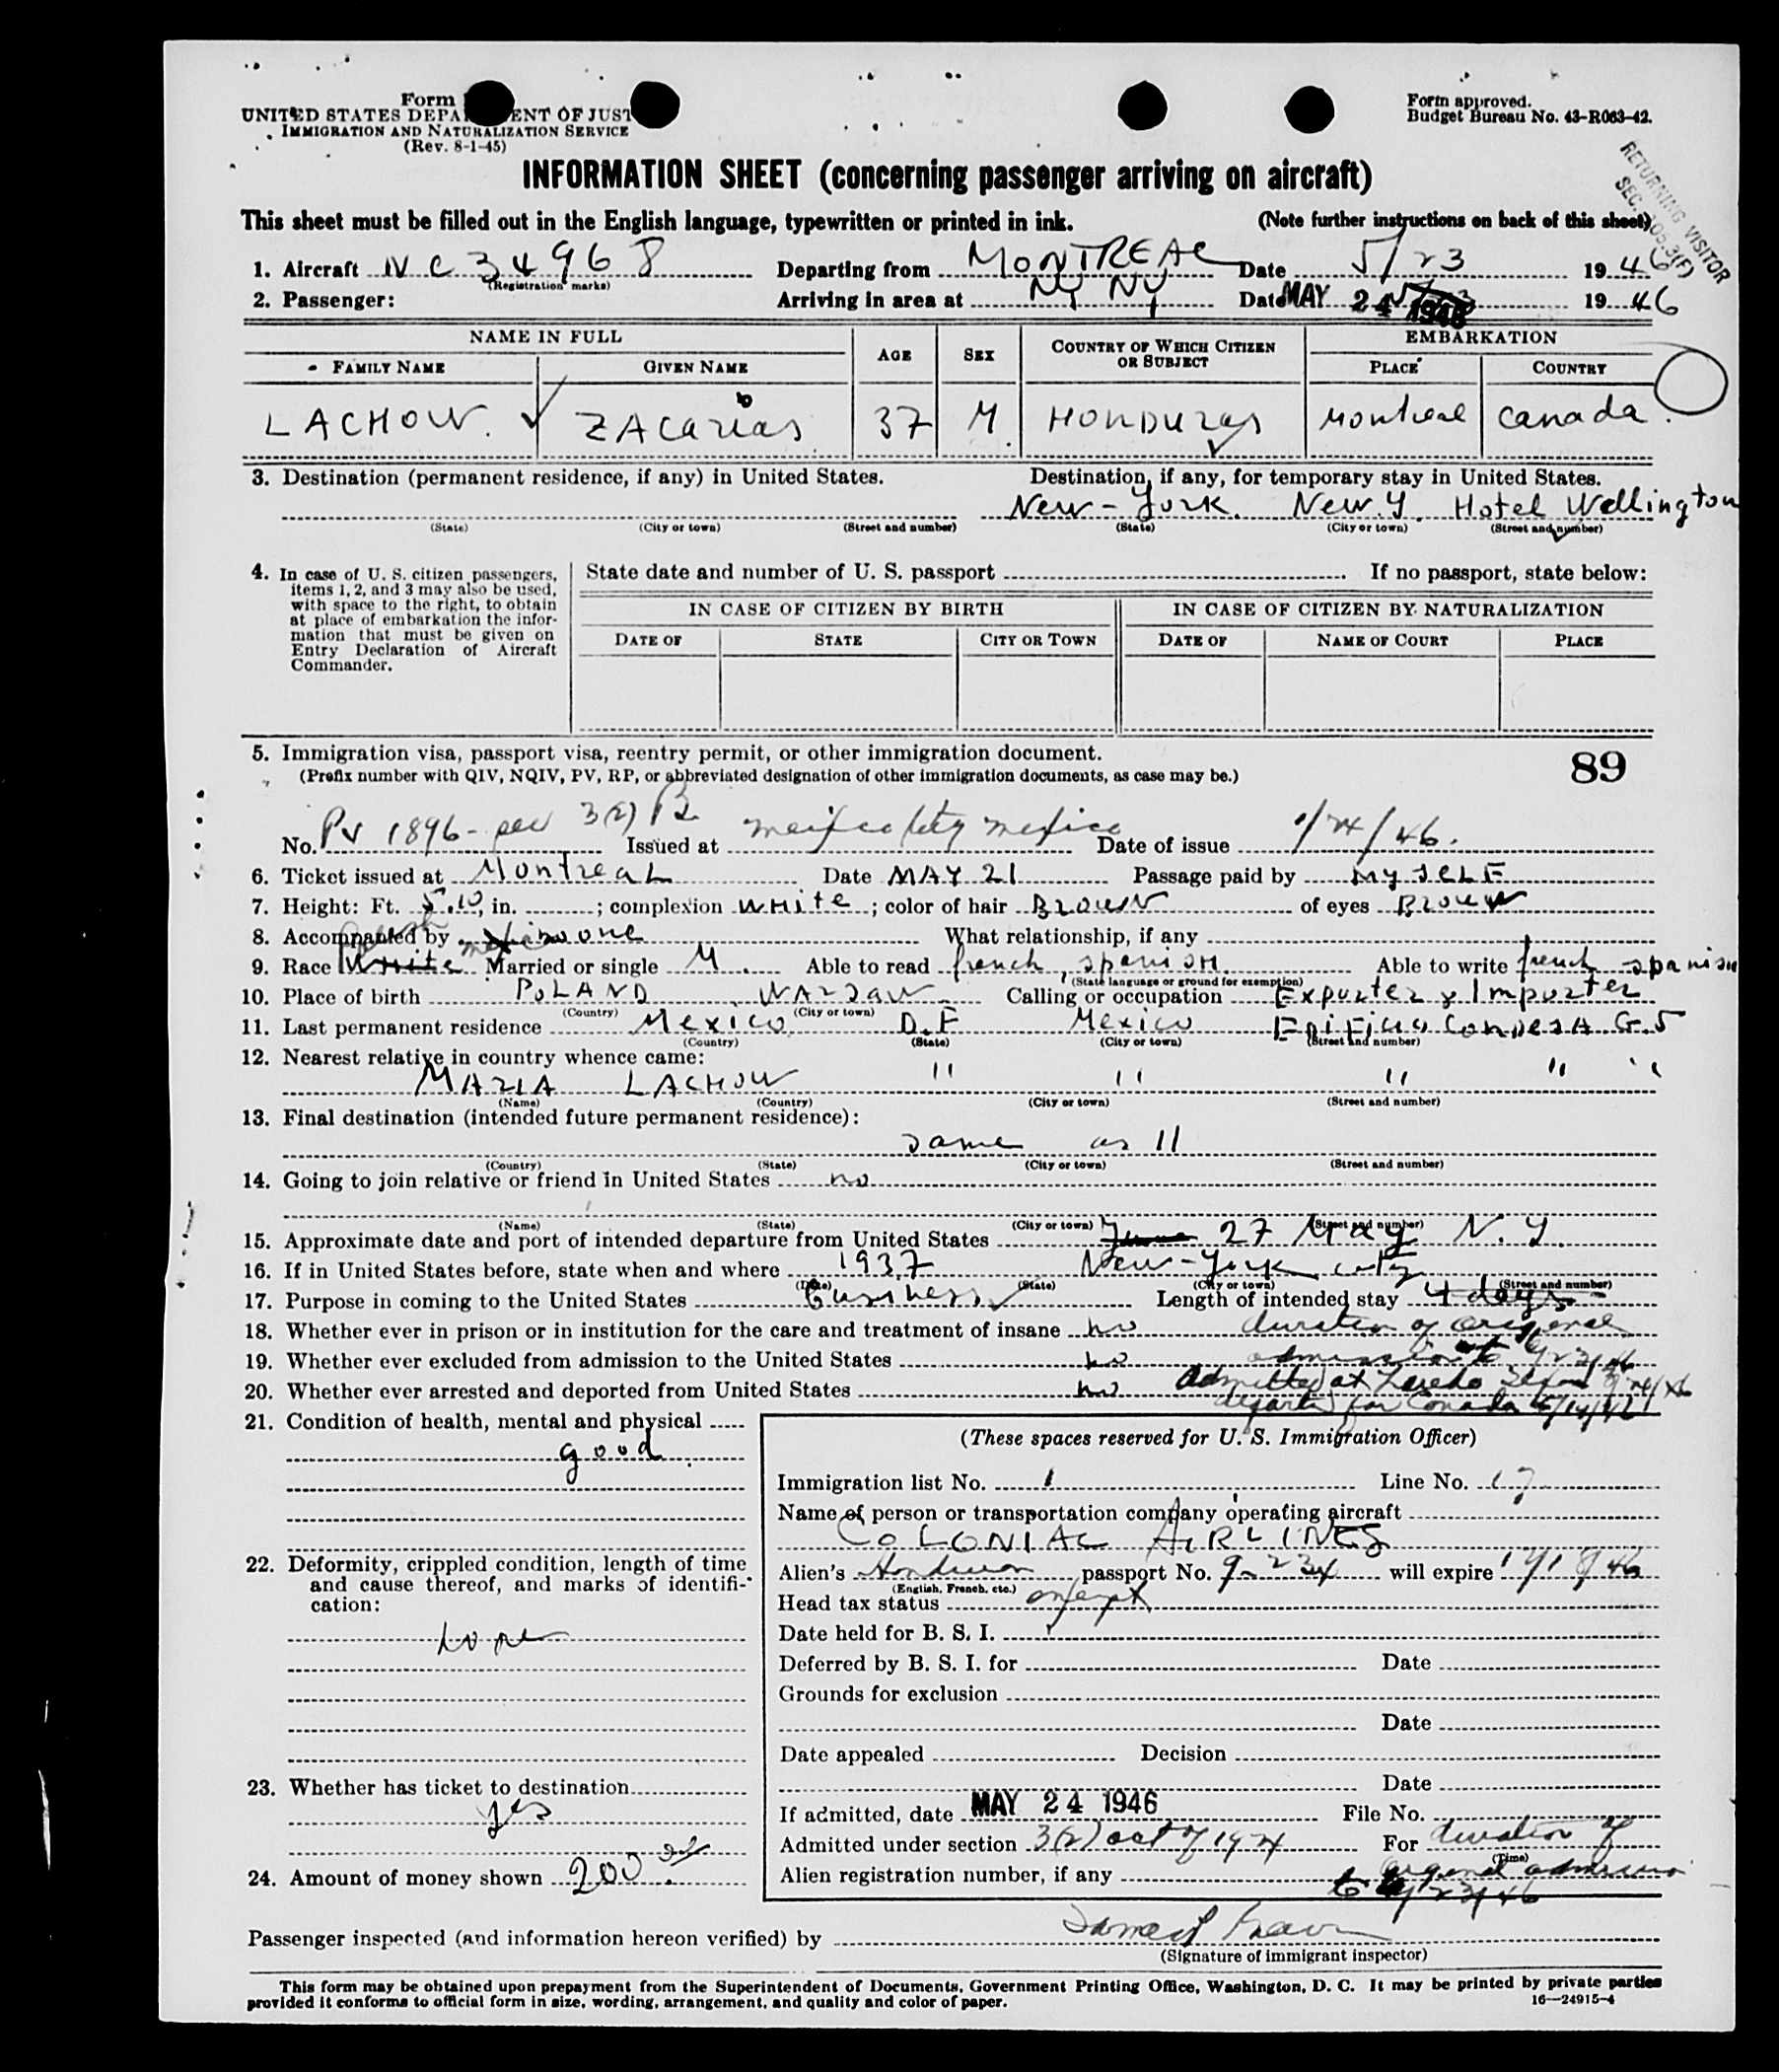 Form
UNITED STATES DEPA ENT OF JUST
IMMIGRATION AND NATURALIZATION SERVICE
(Rev. 8-1-45)
Form approved.
Budget Bureau No. 43-R063-42.
RETURNING VISITOR
SEC.
INFORMATION SHEET (concerning passenger arriving on aircraft)
This sheet must be filled out in the English language, typewritten or printed in ink. (Note further instructions on back of this sheet)
1. Aircraft NC 34968 Departing from MONTREAL Date 5/23 1946
(Registration marks)
2. Passenger: Arriving in area at NY NY Date MAY 24 1946 1946
NAME IN FULL AGE SEX COUNTRY OF WHICH CITIZEN OR SUBJECT EMBARKATION
FAMILY NAME GIVEN NAME PLACE COUNTRY
LACHOW. ZACarias 37 M. HONDURas Montreal Canada.
3. Destination (permanent residence, if any) in United States. Destination, if any, for temporary stay in United States.
New-York. New.Y. Hotel Wellington
(State) (City or town) (Street and number) (State) (City or town) (Street and number)
4. In case of U. S. citizen passengers, items 1, 2, and 3 may also be used, with space to the right, to obtain at place of embarkation the information that must be given on Entry Declaration of Aircraft Commander.
State date and number of U. S. passport If no passport, state below:
IN CASE OF CITIZEN BY BIRTH IN CASE OF CITIZEN BY NATURALIZATION
DATE OF STATE CITY OR TOWN DATE OF NAME OF COURT PLACE
5. Immigration visa, passport visa, reentry permit, or other immigration document. 89
(Prefix number with QIV, NQIV, PV, RP, or abbreviated designation of other immigration documents, as case may be.)
No. PV 1896- 3(2) Issued at Mexico City Mexico Date of issue /46.
6. Ticket issued at MontreaL Date MAY 21 Passage paid by MYSELF
7. Height: Ft. 5.10, in. ; complexion WHite ; color of hair BROWN of eyes BROWN
8. Accompanied by none What relationship, if any
9. Race White Married or single M. Able to read french, spanish. Able to write french spanish
(State language or ground for exemption)
10. Place of birth POLAND WARSAW Calling or occupation Exporter & Importer
(Country) (City or town)
11. Last permanent residence Mexico D.F Mexico EDIFICIO CONDESA G.5
(Country) (State) (City or town) (Street and number)
12. Nearest relative in country whence came:
MARIA LACHOW " " " " "
(Name) (Country) (City or town) (Street and number)
13. Final destination (intended future permanent residence):
same as 11
(Country) (State) (City or town) (Street and number)
14. Going to join relative or friend in United States no
(Name) (State) (City or town) (Street and number)
15. Approximate date and port of intended departure from United States June 27 May N.Y.
16. If in United States before, state when and where 1937 New-York city
(Date) (State) (City or town) (Street and number)
17. Purpose in coming to the United States Business Length of intended stay 4 days
18. Whether ever in prison or in institution for the care and treatment of insane no duration of original
19. Whether ever excluded from admission to the United States no admission to
20. Whether ever arrested and deported from United States no admitted at Laredo
departed for Canada
21. Condition of health, mental and physical
good.
(These spaces reserved for U. S. Immigration Officer)
Immigration list No. 1 Line No. 17
Name of person or transportation company operating aircraft
COLONIAL AIRLINES
22. Deformity, crippled condition, length of time and cause thereof, and marks of identification:
none
Alien's Honduran passport No. 9-234 will expire
(English, French, etc.)
Head tax status exempt
Date held for B. S. I.
Deferred by B. S. I. for Date
Grounds for exclusion
Date
Date appealed Decision
Date
23. Whether has ticket to destination
yes
If admitted, date MAY 24 1946 File No.
Admitted under section 3(2) act of 1924 For duration of
(Time)
24. Amount of money shown 200.
Alien registration number, if any original admission
to
Passenger inspected (and information hereon verified) by
(Signature of immigrant inspector)
This form may be obtained upon prepayment from the Superintendent of Documents, Government Printing Office, Washington, D. C. It may be printed by private parties
provided it conforms to official form in size, wording, arrangement, and quality and color of paper. 16—24915-4